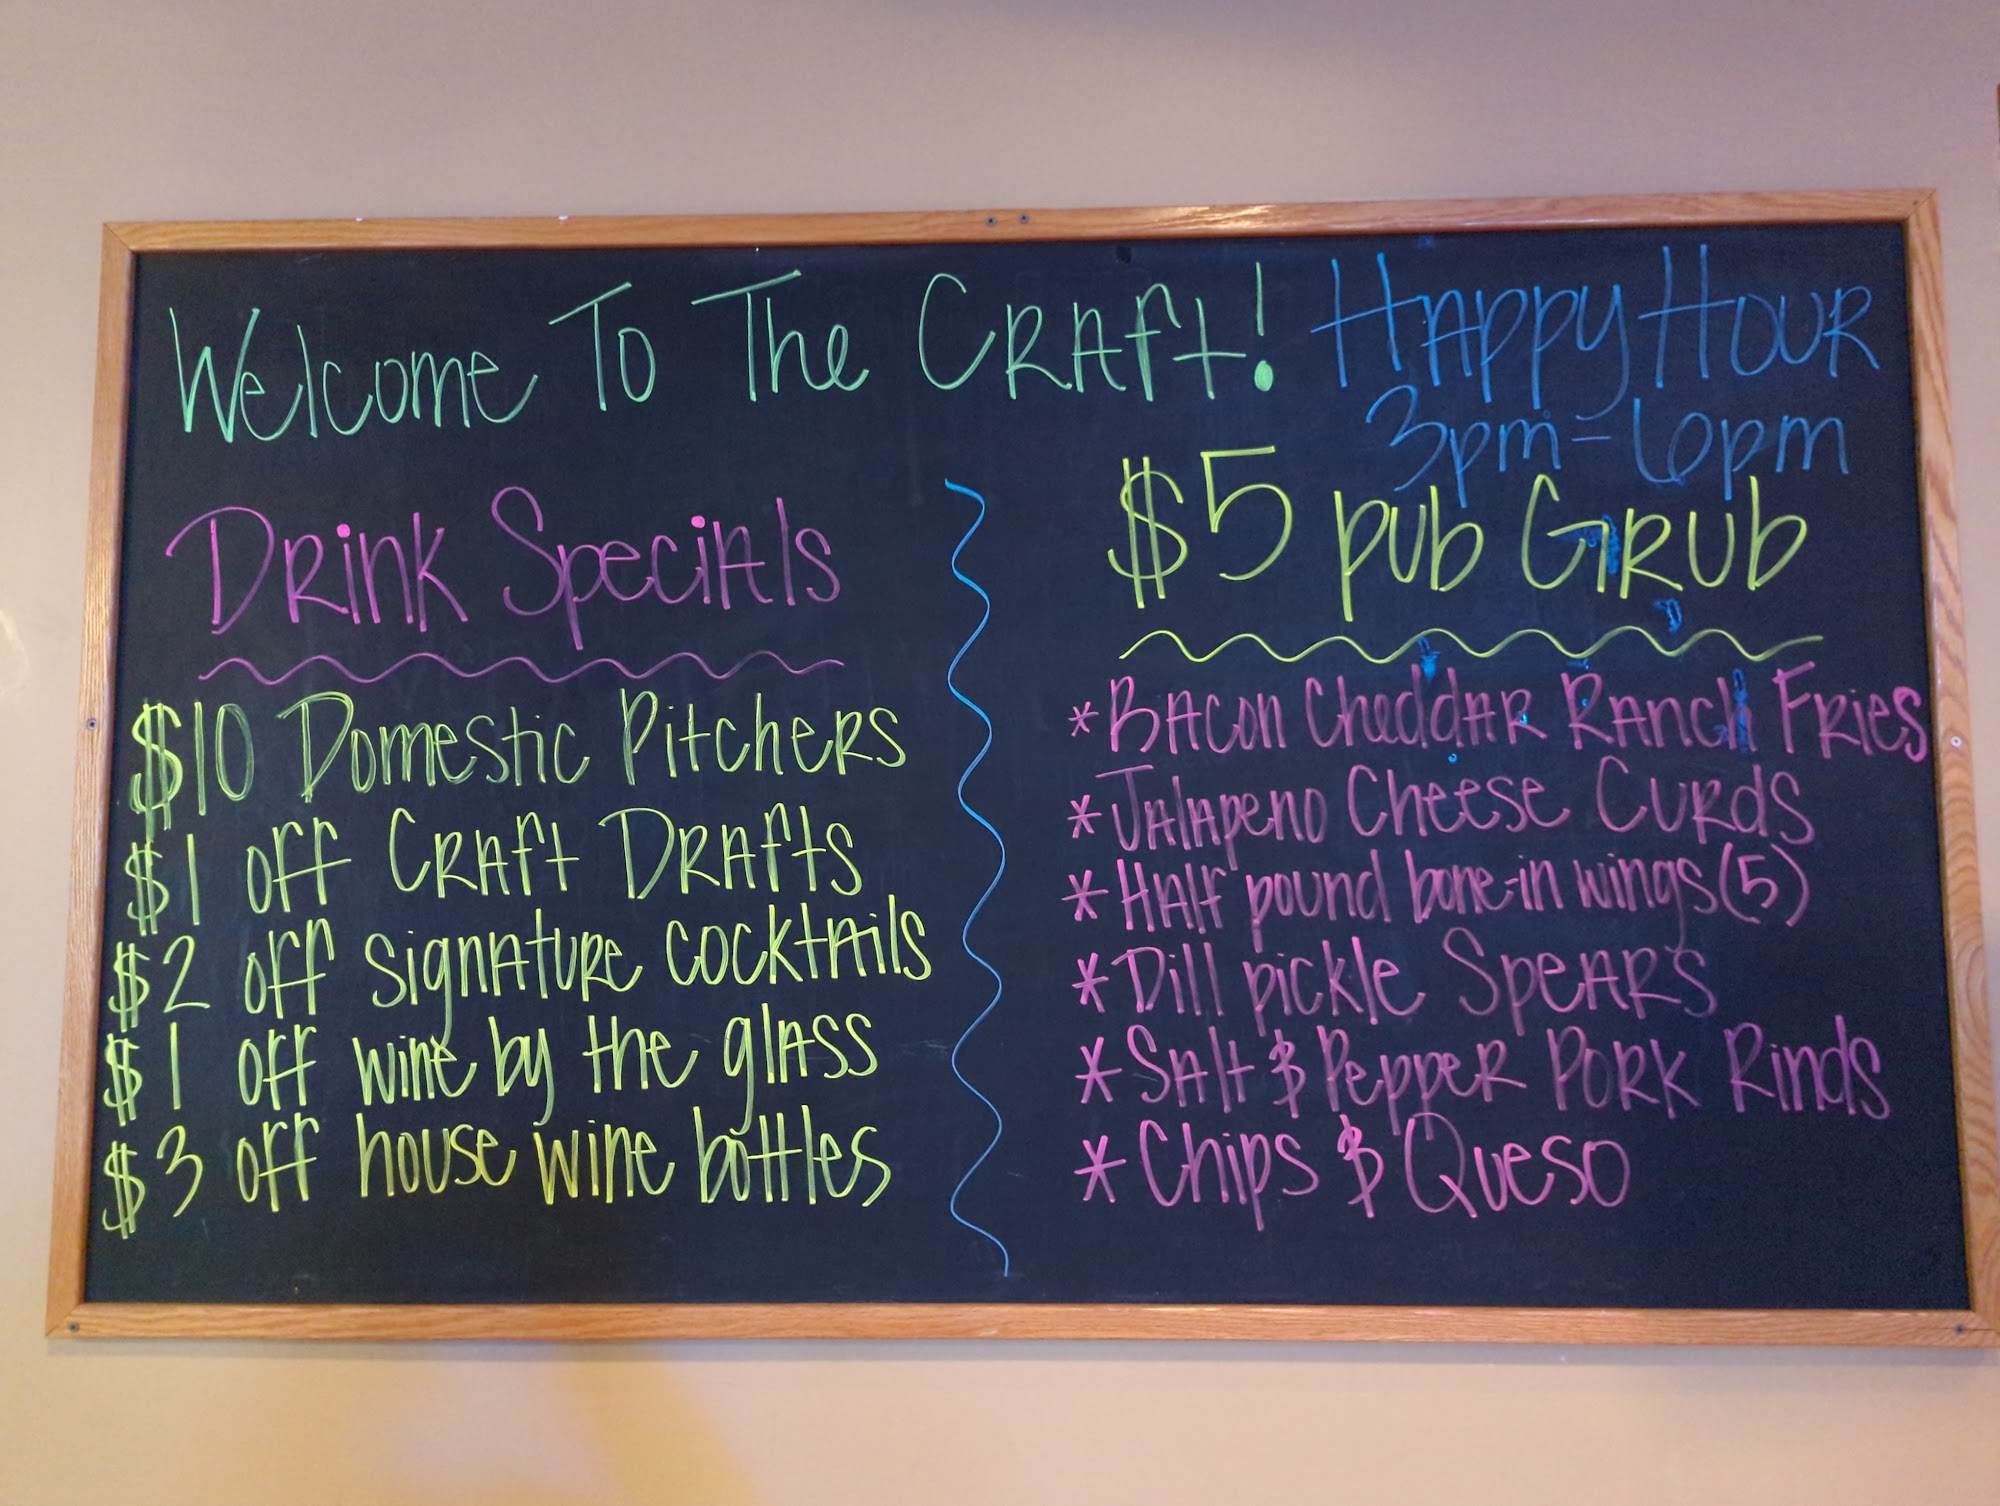 Welcome To The CRAft!
HAppy HouR
3pm-6pm
DRink SpeciAls
$10 Domestic PitcheRs
$1 off CRAft DRAfts
$2 off signAtuRe cocktAils
$1 off wine by the glAss
$3 off house wine bottles
$5 pub GRub
*BAcon CheddAR RAnch FRies
*JAlApeno Cheese CuRds
*HAlf pound bone-in wings (5)
*Dill pickle SpeARs
*SAlt & PeppeR PoRk Rinds
*Chips & Queso